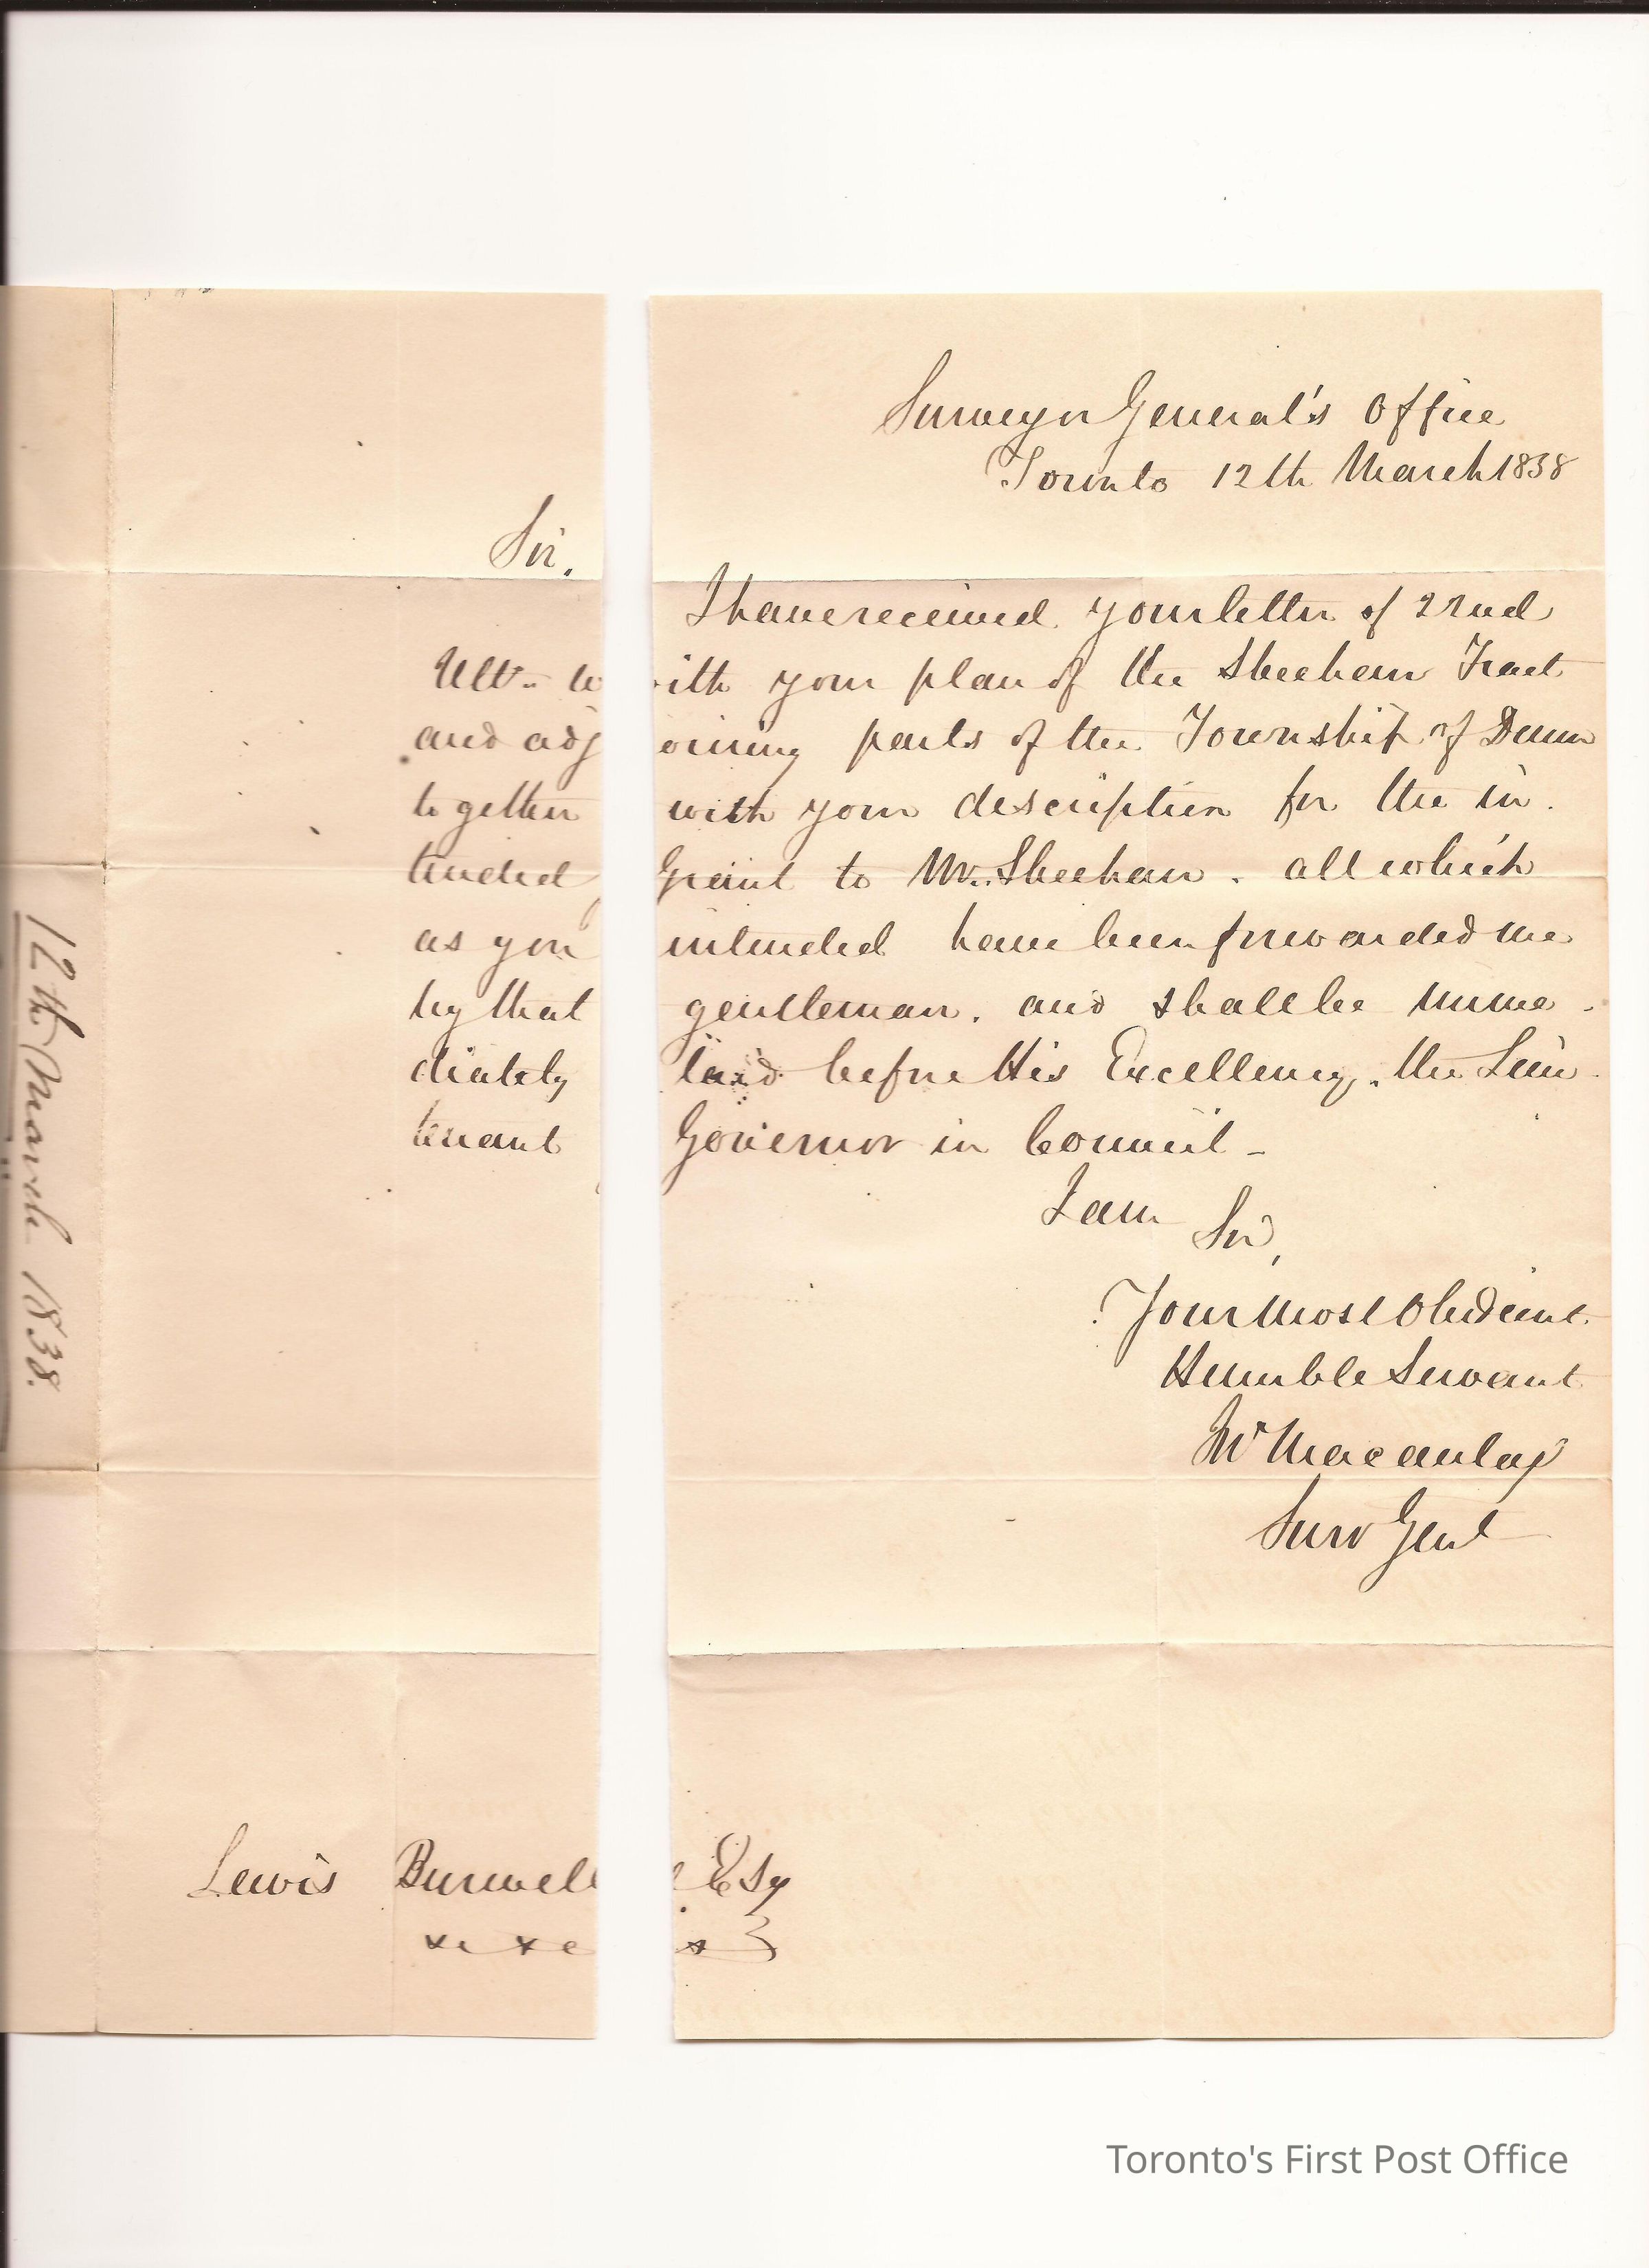 Surveyor General's Office
Toronto 12th March 1838
Sir.
I have received your letter of 22nd
Ult.. with your plan of the Sheehan Tract
and adjoining parts of the Township of Dunn
together with your description for the in.
tended Grant to Mr.. Sheehan. all which
as you intended have been forwarded me
by that gentleman. and shall be imme.
diately laid before His Excellency. the Lieu.
tenant Governor in Council -
I am Sir,
Your Most Obedient
Humble Servant
Macaulay
Surv Genl
Lewis Burwell Esq
12th March 1838.
Toronto's First Post Office